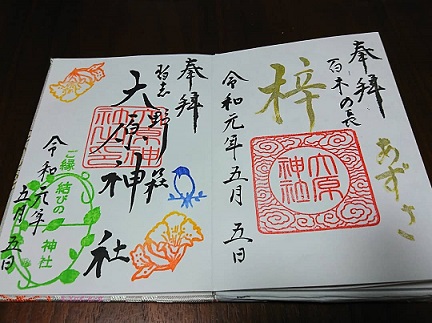 奉拝
百木の長
梓
あずさ
大原神社
令和元年五月五日
奉拝
習志野萩
大原神社
令和元年
五月五日
ご縁結びの
神社